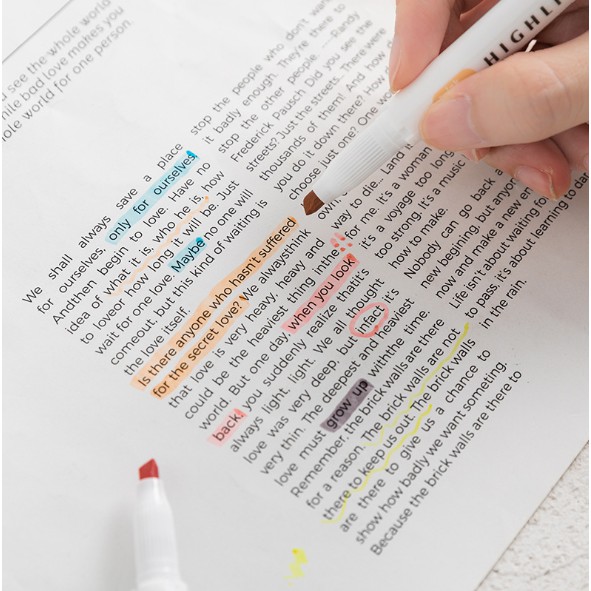 see the whole world
bad love makes you
world for one person.
We shall always save a place
for ourselves, only for ourselves.
Andthen begin to love. Have no
idea of what it is, who he is, how
to loveor how long it will be. Just
wait for one love. Maybe no one will
comeout, but this kind of waiting is
the love itself.
Is there anyone who hasn't suffered
for the secret love? We alwaysthink
that love is very heavy, heavy and
could be the heaviest thing inthe
world. But one day, when you look
back, you suddenly realize thatit's
always light, light. We all thought
love was very deep, but infact it's
very thin. The deepest and heaviest
love must grow up withthe time.
Remember, the brick walls are there
for a reason. The brick walls are not
there to keep us out. The brick walls
are there to give us a chance to
show how badly we want something.
Because the brick walls are there to
stop the people who don't
it badly enough. They're there to
stop the other people. —Randy
Frederick Pausch Did you see the
streets?Just the streets. There were
thousands of them! And how
you do it down there? How
choose just one? One
way to die. Land
for me. It's a woman
It's a voyage too long
too strong.It's a music
how to make.
Nobody can go back
new begining, but
now and make a new
Life isn't about waiting
to pass, it's about learning to
in the rain.
HIGHLI